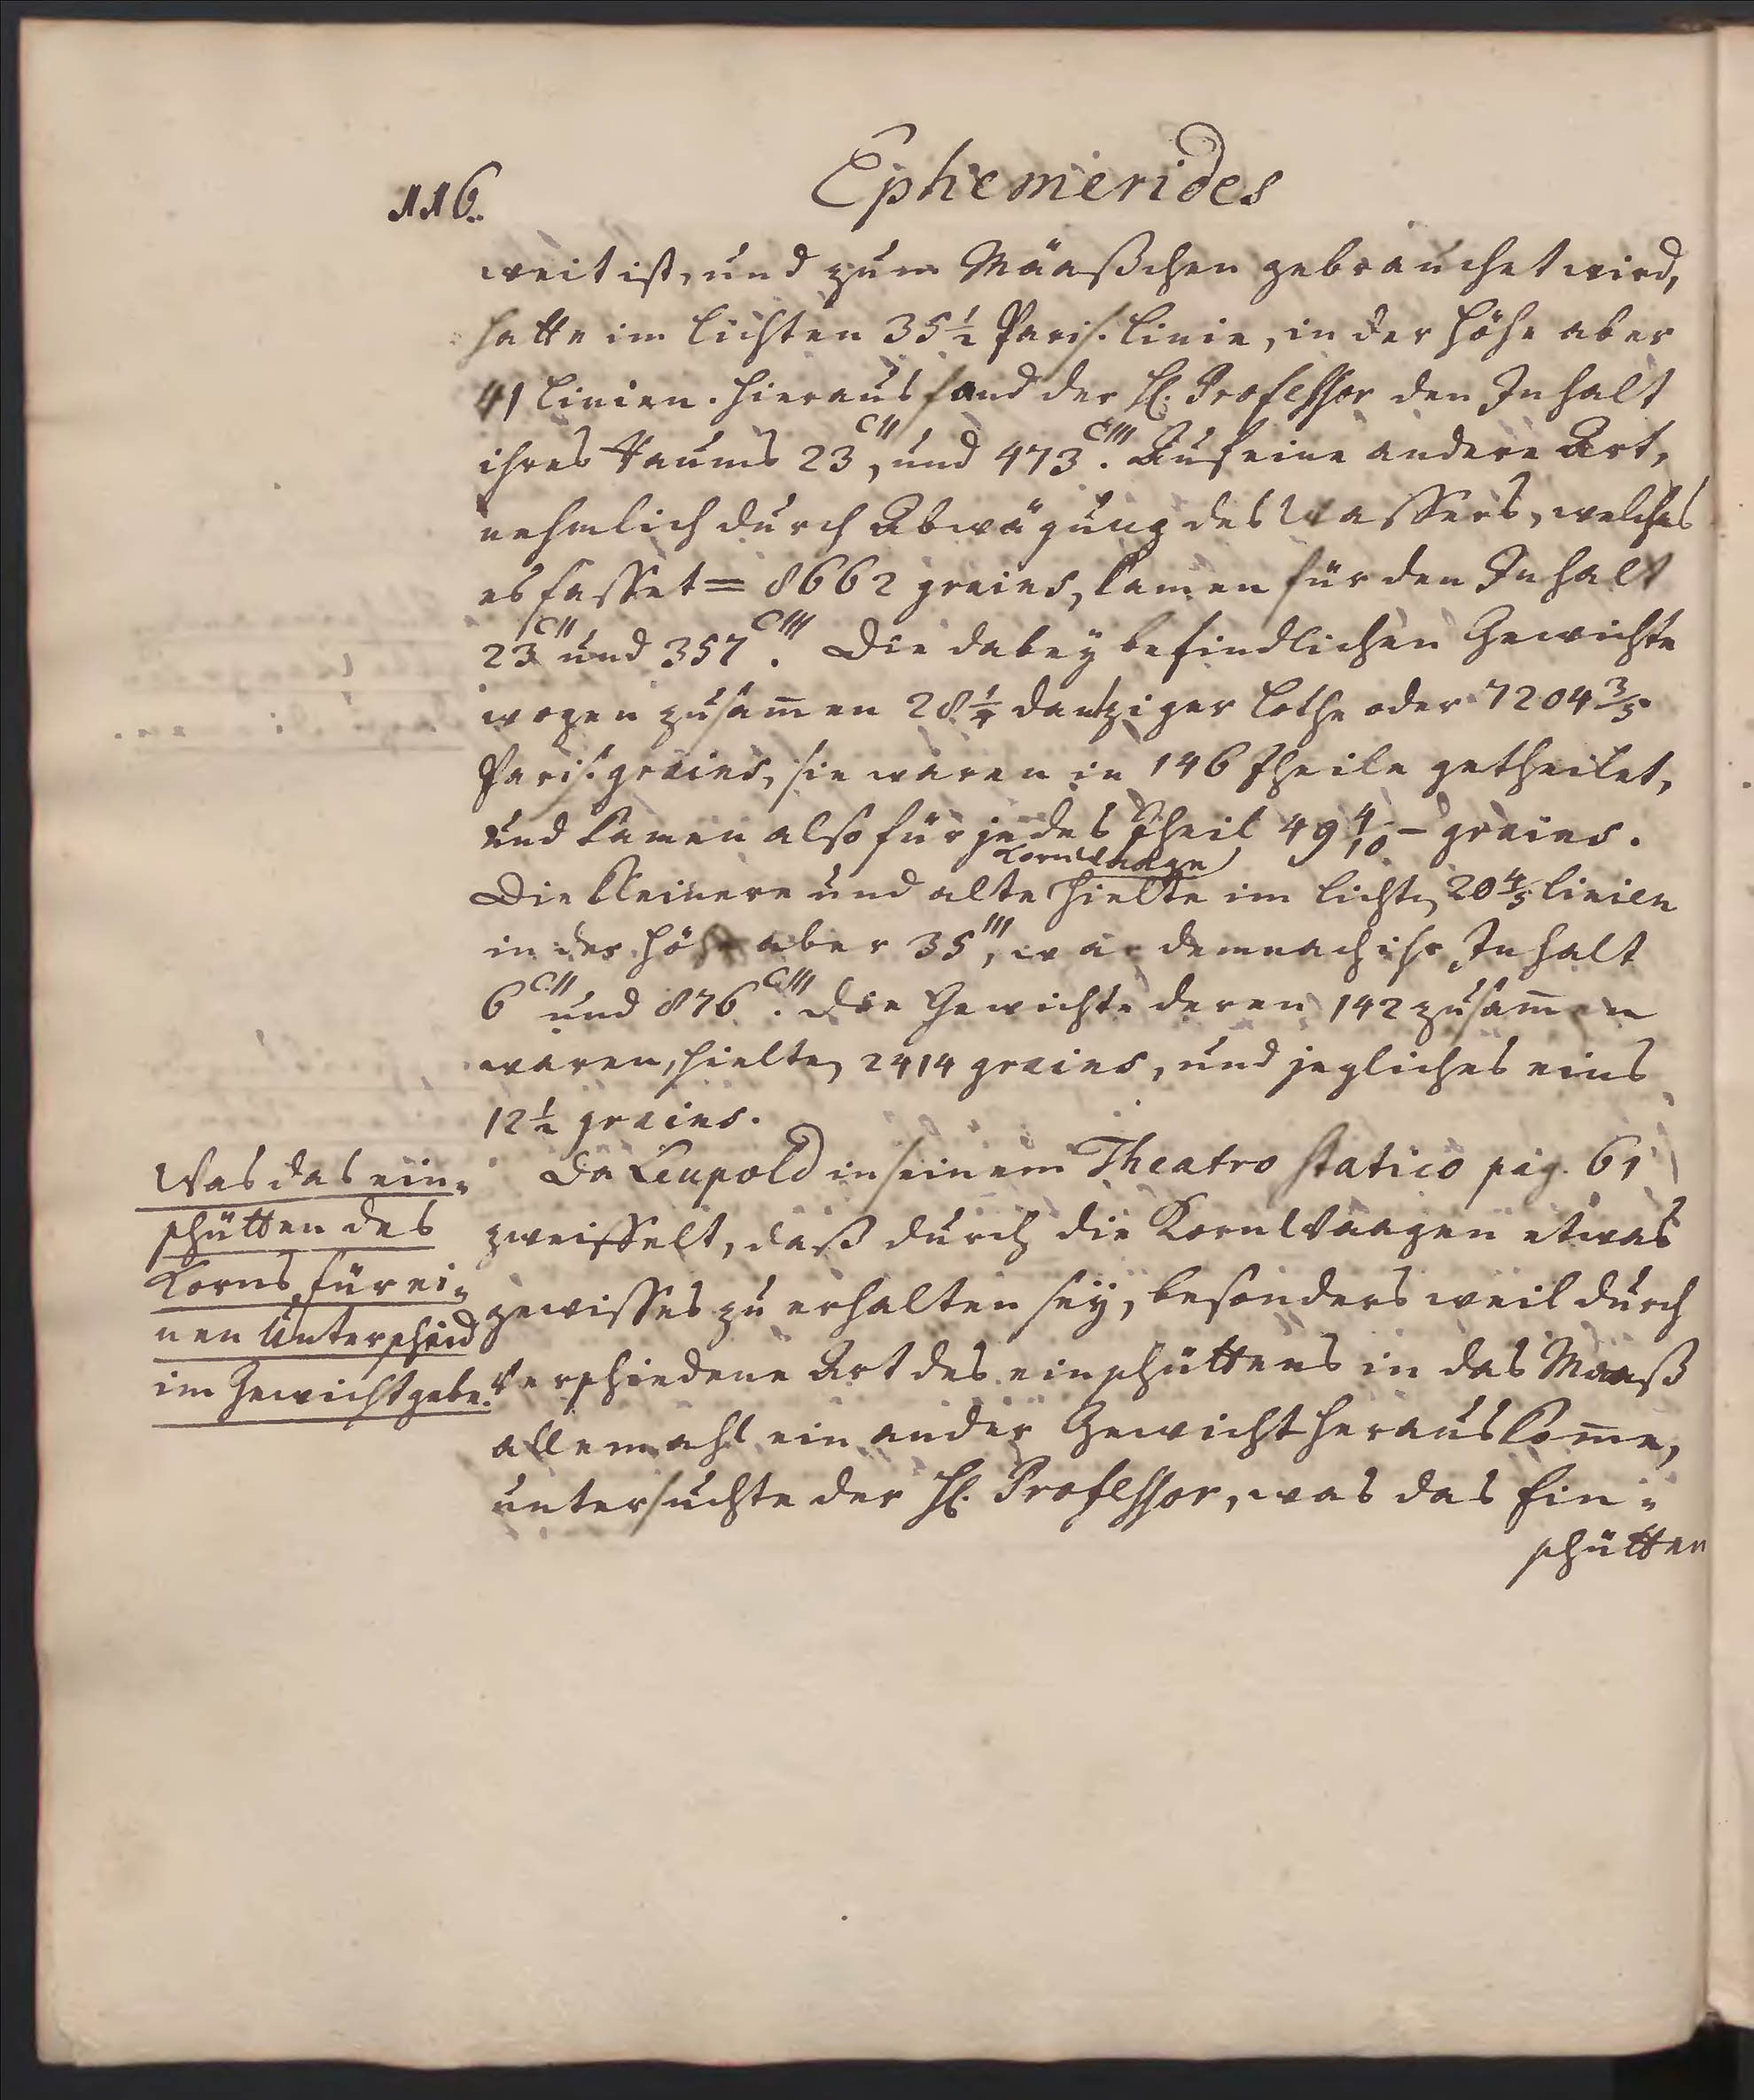 116.
Ephemerides
weit ist, und zum Määßchen gebrauchet wird,
hatte im Lichten 35 1/2 Paris. Linie, in der Höhe aber
41 Linien. Hieraus fand der H. Professor den Inhalt
ihres Raums 23 C'', und 473 C'''. Auf eine andere Art,
nehmlich durch Abwägung des Wassers, welches
es fasset = 8662 grains, kamen für den Inhalt
23 C'' und 357 C'''. Die dabey befindlichen Gewichte
wogen zusam̄en 28 1/4 dantziger Lothe oder 7204 3/5
Paris. grains, sie waren in 146 Theile getheilet,
und kamen also für jedes Theil 49 4/10 - grains.
KornWaage
Die kleinere und alte hielte im Lichten 20 4/5 Linien
in der Höhe aber 35''', war demnach ihr Inhalt
6 C'' und 876 C'''. Die Gewichte deren 142 zusam̄en
waren, hielten 2414 grains, und jegliches eins
12 1/2 grains.
Da Leupold in seinem Theatro statico pag. 61
zweiffelt, daß durch die KornWaagen etwas
gewisses zu erhalten seÿ, besonders weil durch
verschiedene Art des einschüttens in das Maaß
allemahl ein ander Gewicht herauskom̄e,
untersuchte der H. Professor, was das Ein-
schütten
Was das ein-
schütten des
Korns für ei-
nen Unterscheid
im Gewicht gebe.